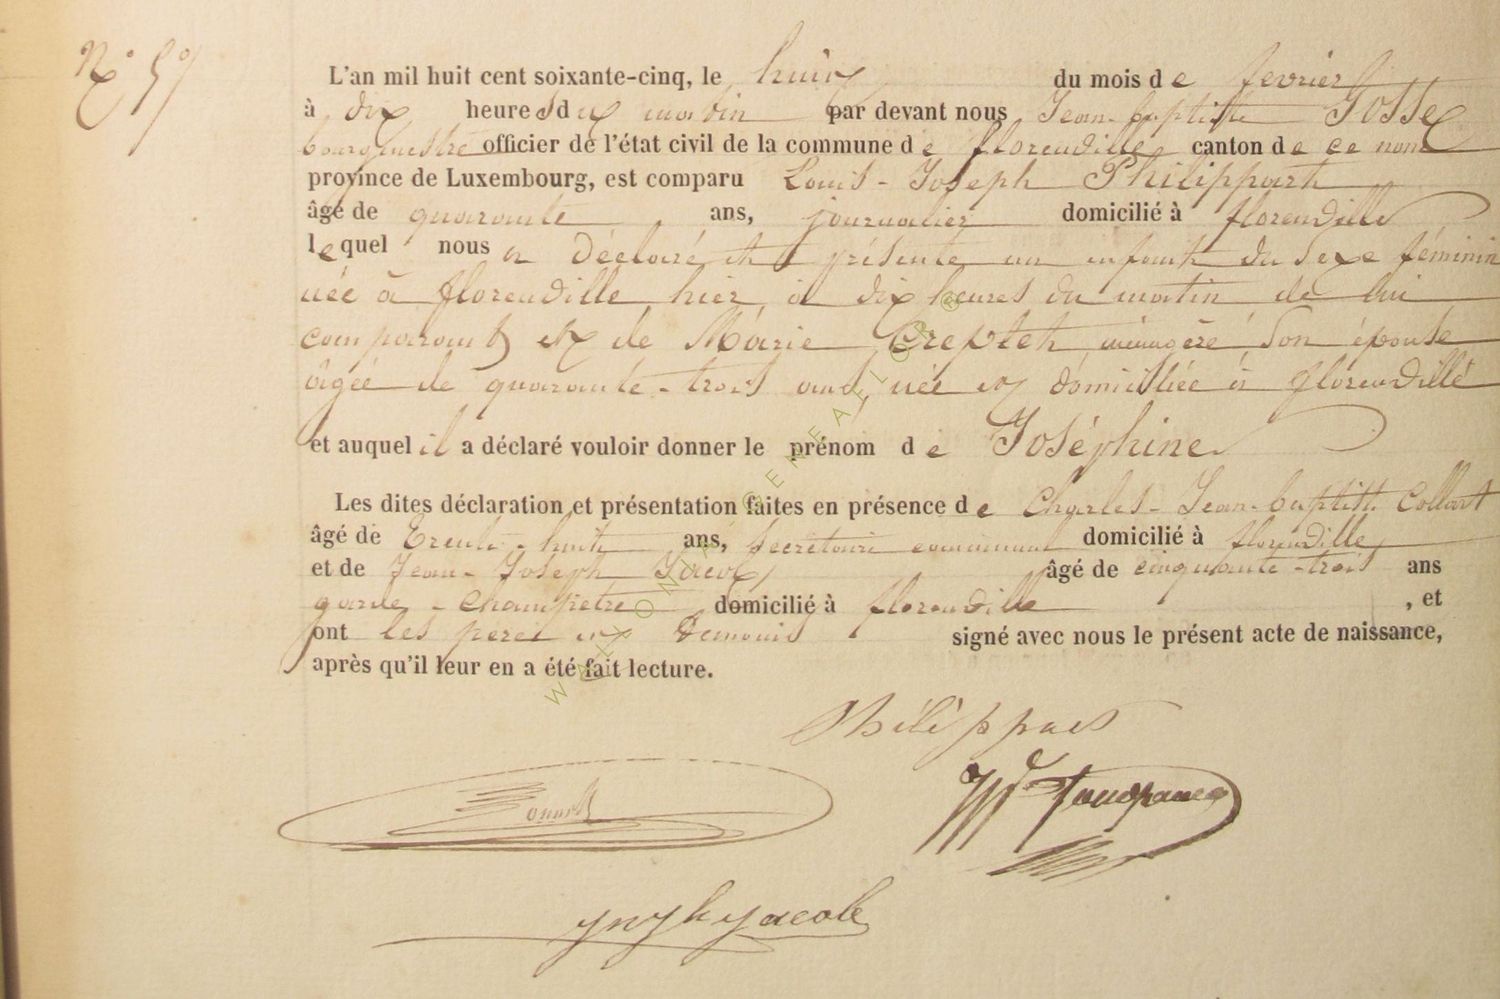 N° 5
L'an mil huit cent soixante-cinq, le huit du mois de fevrier
à dix heures du matin par devant nous Jean-baptiste Josse
bourgmestre officier de l'état civil de la commune de florenville canton de ce nom
province de Luxembourg, est comparu Louis-Joseph Philippart
âgé de quarante ans, journalier domicilié à florenville
lequel nous a déclaré et présenté un enfant du sexe féminin
née à florenville hier à dix heures du matin de lui
comparant et de Marie ménagère son épouse
âgée de quarante-trois ans, née et domiciliée à florenville
et auquel il a déclaré vouloir donner le prénom de Joséphine
Les dites déclaration et présentation faites en présence de Charles-Jean-baptiste Collart
âgé de trente-huit ans, secrétaire communal domicilié à florenville
et de Jean-Joseph Jacob âgé de cinquante-trois ans
garde-champetre domicilié à florenville , et
ont les père et témoins signé avec nous le présent acte de naissance,
après qu'il leur en a été fait lecture.
WALLONIA GENEALOGIE
Philippart
Jacob